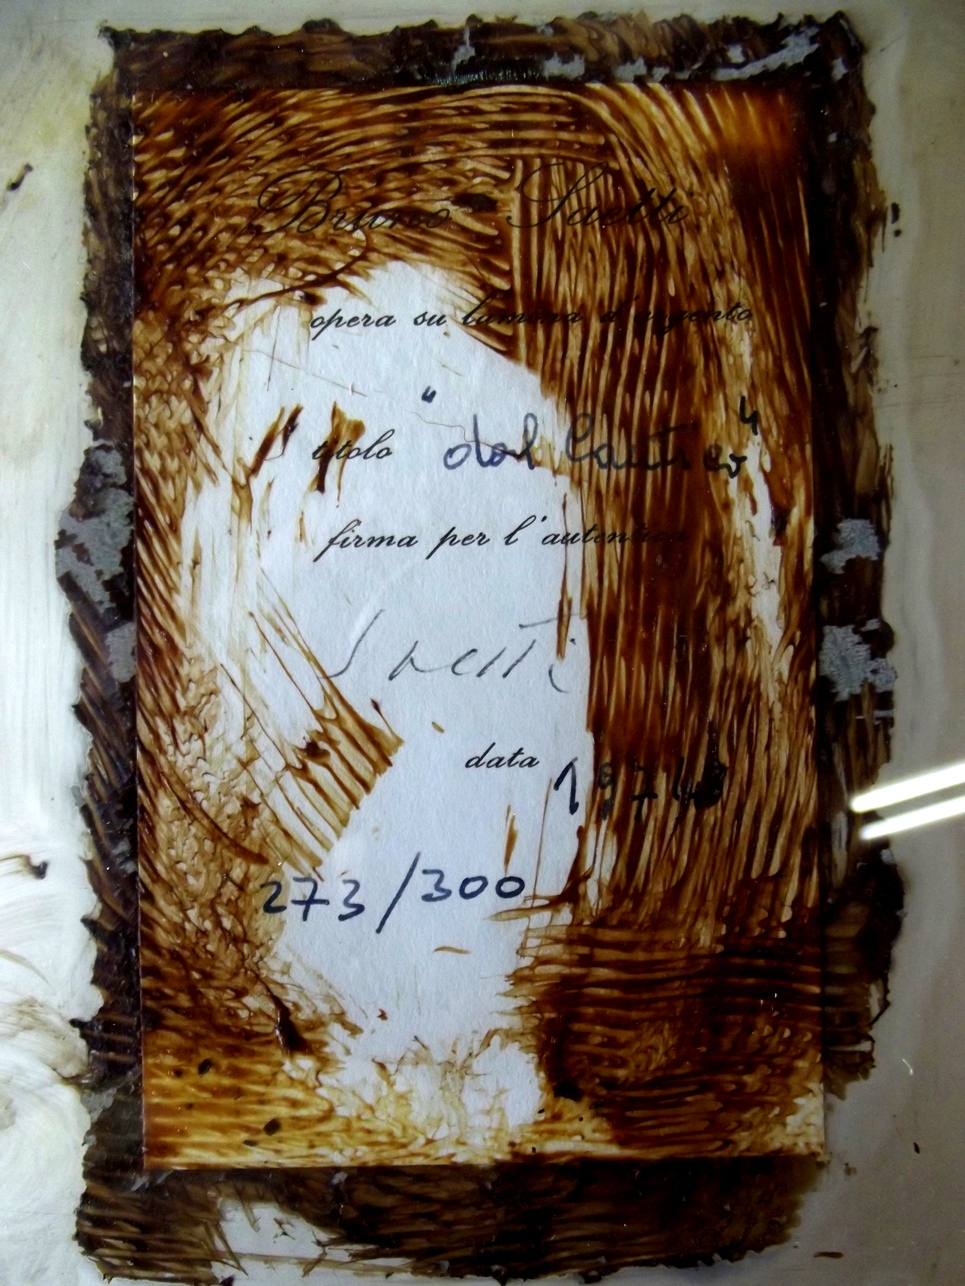 Bruno Saetti
opera su lamina d'argento
titolo "dal
firma per l'autentica
Saetti
data 1974
273/300